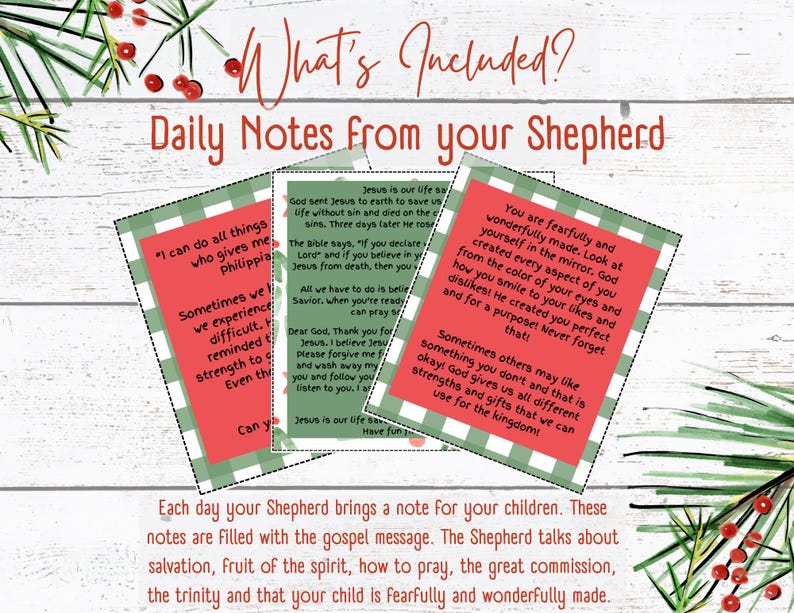 What's Included?
Daily Notes from your Shepherd
"I can do all things
who gives me
Philippia
Sometimes we
we experience
difficult.
reminded
strength to
Even the
Can
Jesus is our life sa
God sent Jesus to earth to save us
life without sin and died on the
sins. Three days later He rose
The Bible says, "If you declare
Lord" and if you believe in
Jesus from death, then you
All we have to do is believ
Savior. when you're ready
can pray
Dear God, Thank you for
Jesus. I believe Jesus
Please forgive me
and wash away my
you and follow you
listen to you. I as
Jesus is our life save
Have fun
You are fearfully and
wonderfully made. Look at
yourself in the mirror. God
created every aspect of you
from the color of your eyes and
how you smile to your likes and
dislikes! He created you perfect
and for a purpose! Never forget
that!
Sometimes others may like
something you don't and that is
okay! God gives us all different
strengths and gifts that we can
use for the kingdom!
Each day your Shepherd brings a note for your children. These
notes are filled with the gospel message. The Shepherd talks about
salvation, fruit of the spirit, how to pray, the great commission,
the trinity and that your child is fearfully and wonderfully made.